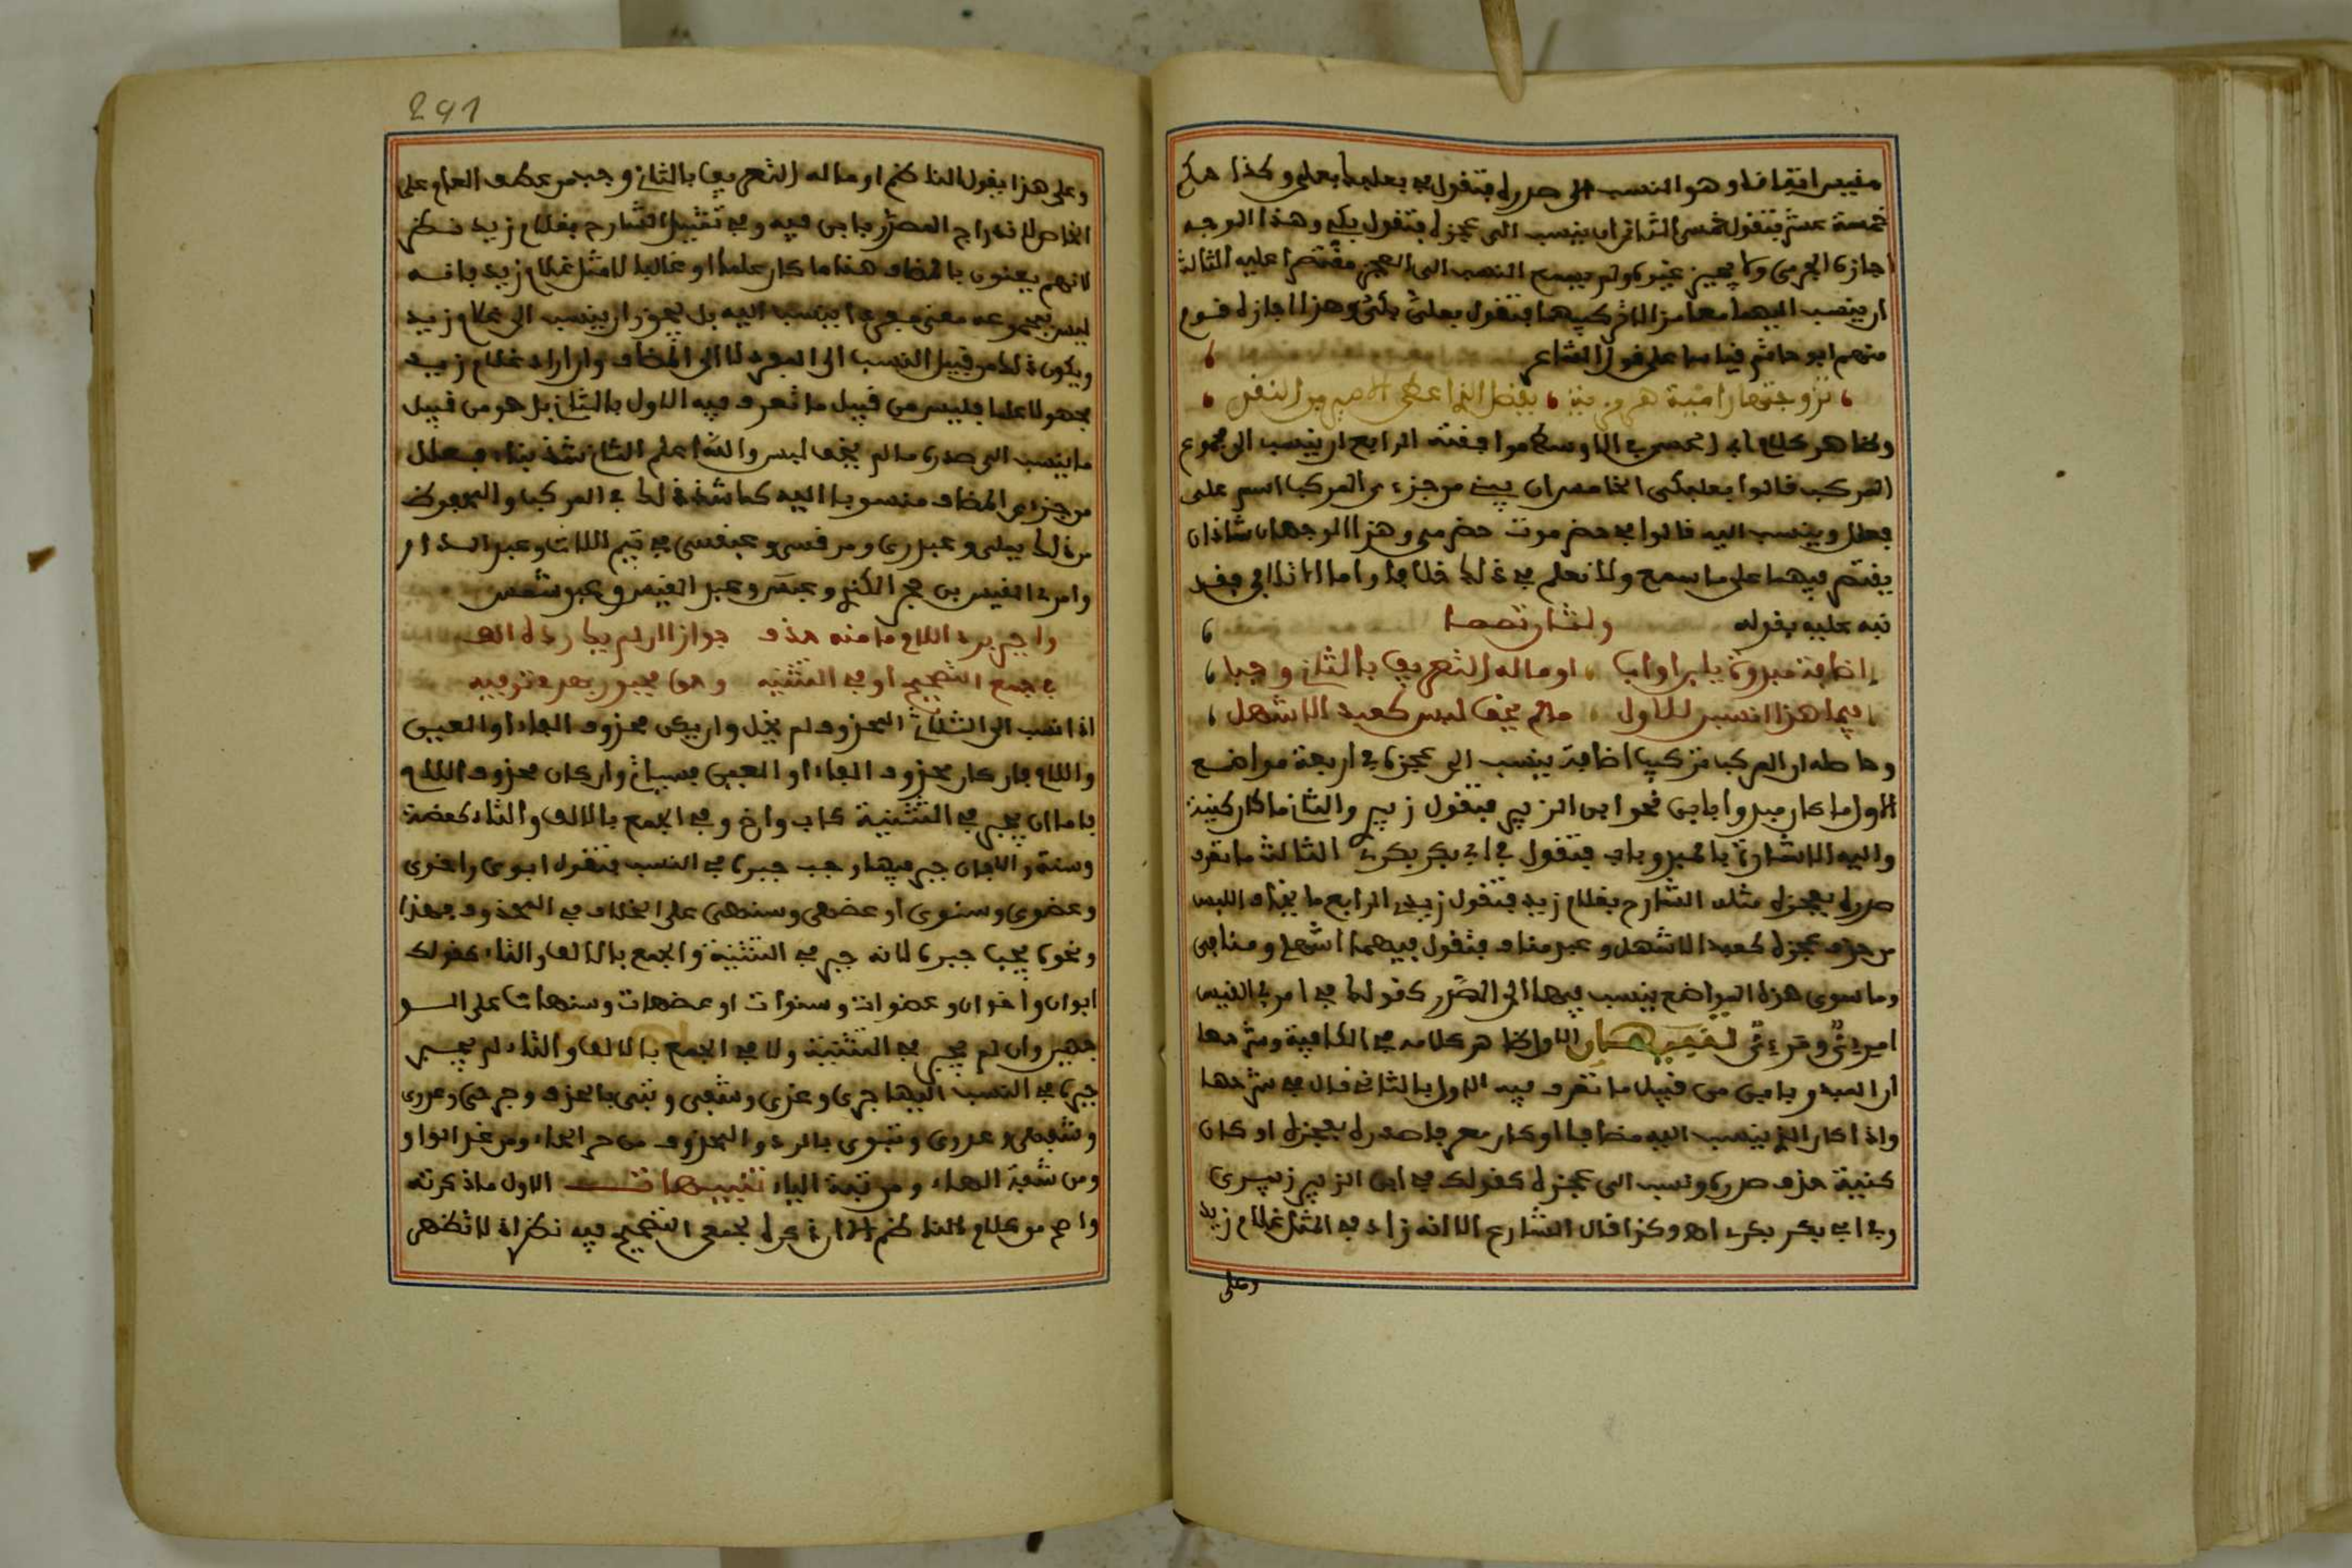 مقيس اتفاقا وهو النسب الى صدره فتقول في بعلبك بعلي وكذا حكم
خمسة عشر فتقول خمسي الثاني ان ينسب الى عجزه فتقول بكي وهذا الوجه
اجازه الجرمي ولا يجيز غيره ولم يسمع النسب الى العجز مقتصرا عليه الثالث
ان ينسب اليهما معا مزالا تركيبهما فتقول بعلي بكي وهذا اجازه قوم
منهم ابو حاتم قياسا على قول الشاعر
تزوجتها رامية هرمزية بفضل الذي اعطى الامير من النقد
وظاهر كلام ابي الحسن في الاوسط موافقته الرابع ان ينسب الى مجموع
المركب قالوا بعلبكي الخامس ان يبنى من جزءي المركب اسم على
فعلل وينسب اليه قالوا في حضرموت حضرمي وهذا الوجهان شاذان
يقتصر فيهما على ما سمع ولا نعلم في ذلك خلافا واما الاضافي فقد
نبه عليه بقوله ولثان تمما
إضافة مبدوة بابن او اب او ماله التعريف بالثاني وجبا
فيما هذا انسبن للاول مالم يخف لبس كعبد الاشهل
وحاصله ان المركب تركيب اضافة ينسب الى عجزه في اربعة مواضع
الاول ما كان مبدوا بابن نحو ابن الزبير فتقول زبيري والثاني ما كان كنية
واليه الاشارة بالمبدو باب فتقول في ابي بكر بكري الثالث ما تعرف
صدره بعجزه مثله الشارح بغلام زيد فتقول زيدي الرابع ما يخاف اللبس
من حذف عجزه كعبد الاشهل وعبد مناف فتقول فيهما اشهلي ومنافي
وما سوى هذه المواضع ينسب فيها الى الصدر كقولك في امرئ القيس
امرئي ومرئي تنبيهان الاول ظاهر كلامه في الكافية وشرحها
ان المبدو بابن من قبيل ما تعرف فيه الاول بالثاني قال في شرحها
واذا كان الذي ينسب اليه مضافا وكان معرفا صدره بعجزه او كان
كنية حذف صدره ونسب الى عجزه كقولك في ابن الزبير زبيري
وفي ابي بكر بكري اه وكذا قال الشارح الا انه زاد في المثل غلام زيد
وعلى
291
وعلى هذا يقول الناظم او ماله التعريف بالثاني وجب من عطف العام على
الخاص لاندراج المصدر بابن فيه وفي تمثيل الشارح بغلام زيد نظر
لانهم يعنون بالمضاف هنا ما كان علما او غالبا لا مثل غلام زيد فانه
ليس لمجموعه معنى مفرد ينسب اليه بل يجوز ان ينسب الى غلام زيد
ويكون ذلك من قبيل النسب الى المفرد لا الى المضاف وان اراد غلام زيد
مجعولا علما فليس من قبيل ما تعرف فيه الاول بالثاني بل هو من قبيل
ما ينسب الى صدره ما لم يخف لبس والله اعلم الثاني شذ بناء فعلل
من جزءي المضاف منسوبا اليه كما شذ ذلك في المركب والمحفوظ
من ذلك تيملي وعبدري ومرقسي وعبقسي في تيم اللات وعبد الدار
وامرئ القيس بن حجر الكندي وعبد القيس وعبد شمس
واجبر برد اللام ما منه حذف جوازا ان لم يك رده الف
في جمع التصحيح او في التثنية وحق مجبور بهذي توفيه
اذا نسب الى الثلاثي المحذوف لم يخل وان يكن محذوف الفاء او العين
واللام فان كان محذوف الفاء او العين فسيأتي وان كان محذوف اللام
فاما ان يجبر في التثنية كاب واخ وفي الجمع بالالف والتاء كعضة
وسنة والا فان جبر فيها وجب جبره في النسب فتقول ابوي واخوي
وعضوي وسنوي او عضهي وسنهي على الخلاف في المحذوف فهذا
ونحوه يجب جبره لانه جبر في التثنية والجمع بالالف والتاء كقولك
ابوان واخوان وعضوات وسنوات او عضهات وسنهات على الو
جهين وان لم يجبر في التثنية ولا في الجمع بالالف والتاء لم يجب
جبره في النسب اليها حري وغدي وشفي وثبي بالحذف وحرحي وغدوي
وشفهي وغدوي وثبوي بالرد والمحذوف من حر الحاء ومن غد الواو
ومن شفة الهاء ومن ثبة الياء تنبيهات الاول ما ذكرته
واضح من كلام الناظم الا ان ذكره لجمعي التصحيح فيه نظر اذ لا تظهر